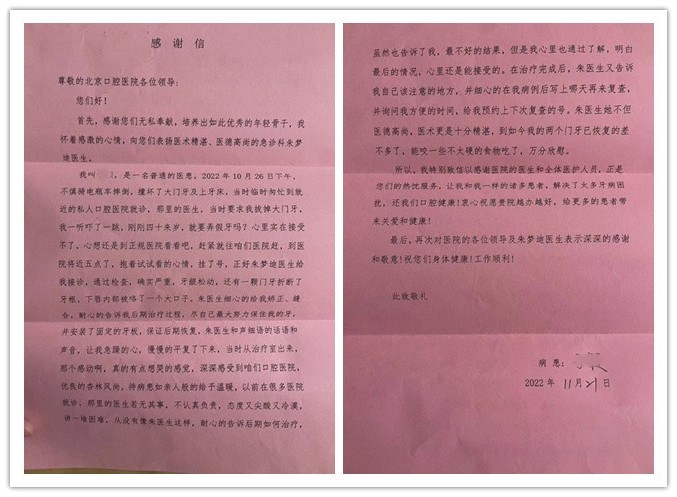 感谢信
尊敬的北京口腔医院各位领导：
您们好！
首先，感谢您们无私奉献，培养出如此优秀的年轻骨干，我
怀着感激的心情，向您们表扬医术精湛、医德高尚的急诊科朱梦
迪医生。
我叫 ，是一名普通的医患。2022年10月26日下午，
不慎骑电瓶车摔倒，撞坏了大门牙及上牙床，当时临时匆忙到就
近的私人口腔医院就诊，那里的医生，当时要求我拔掉大门牙，
我一听吓了一跳，刚刚四十来岁，就要弄假牙吗？心里实在接受
不了，心想还是到正规医院看看吧，赶紧就往咱们医院赶，到医
院将近五点了，抱着试试看的心情，挂了号，正好朱梦迪医生给
我接诊，通过检查，确实严重，牙龈松动，还有一颗门牙折断了
牙根，下唇内部被咯了一个大口子。朱医生细心的给我矫正、缝
合，耐心的告诉我后期治疗过程，尽自己最大努力保住我的牙，
并安装了固定的牙板，保证后期恢复，朱医生和声细语的话语和
声音，让我急躁的心，慢慢的平复了下来，当时从治疗室出来，
那个感动啊，真的有点想哭的感觉，深深感受到咱们口腔医院，
优良的杏林风尚，待病患如亲人般的给予温暖，以前在很多医院
就诊，那里的医生若无其事，不认真负责，态度又尖酸又冷漠，
讲一堆困难，从没有像朱医生这样，耐心的告诉后期如何治疗，
虽然也告诉了我，最不好的结果，但是我心里也通过了解，明白
最后的情况，心里还是能接受的。在治疗完成后，朱医生又告诉
我自己该注意的地方，并细心的在我病例后写上哪天再来复查，
并询问我方便的时间，给我预约上下次复查的号。朱医生她不但
医德高尚，医术更是十分精湛，到如今我的两个门牙已恢复的差
不多了，能咬一些不大硬的食物吃了，万分欣慰。
所以，我特别致信以感谢医院的医生和全体医护人员，正是
您们的热忱服务，让我和我一样的诸多患者，解决了太多牙病困
扰，还我们口腔健康！衷心祝愿贵院越办越好，给更多的患者带
来关爱和健康！
最后，再次对医院的各位领导及朱梦迪医生表示深深的感谢
和敬意！祝您们身体健康！工作顺利！
此致敬礼
病患：
2022年 11月21日